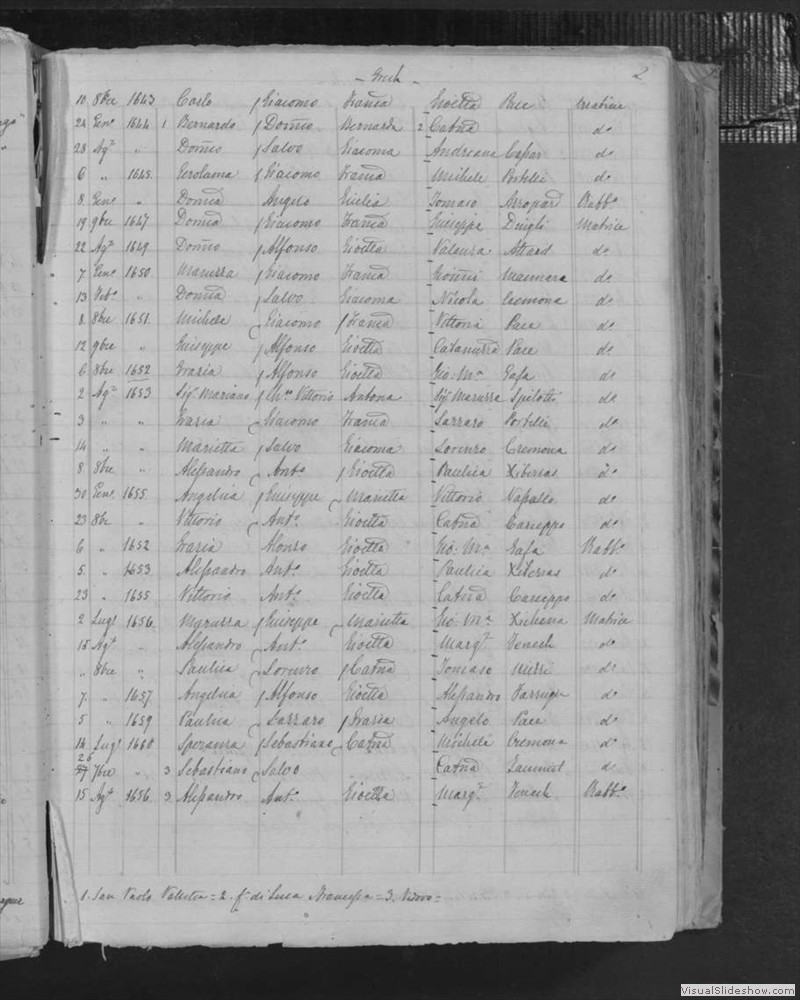 - Grech -
2
10 8bre 1643 Carlo / Giacomo Francᵃ Gioetta Pace Matrice
24 Genº 1644 1 Bernardo / Domcº Bernarda 2 Catnᵃ dº
28 Agº " Domcº / Salvo Giacoma Andreana Caſsar dº
6 " 1645 Gerolama / Giacomo Francᵃ Michele Portelli dº
8 Genº " Domcᵃ Angelo Giulia Tomaso Rabbº
19 9bre 1647 Domcᵃ / Giacomo Francᵃ Giuseppe Dingli Matrice
22 Agº 1649 Domcº / Alfonso Gioetta Valenza Attard dº
7 Genº 1650 Maruzza / Giacomo Francᵃ dº
13 Febº " Domcᵃ / Salvo Giacoma Nicola Cremona dº
8 8bre 1651 Michele / Giacomo / Francᵃ Vittoria Pace dº
12 9bre " Giuseppe / Alfonso Gioetta Catarinuzza Pace dº
6 8bre 1652 Grazia / Alfonso Gioetta Gio: Mᵃ Safa dº
2 Agº 1653 Sigʳ Mariano / Mʳᵒ Vittorio Antona Sigʳᵃ Maruzza Spilotti dº
3 " " Grazia / Giacomo Francᵃ Lazzaro Portelli dº
14 " " Marietta / Salvo Giacoma Lorenzo Cremona dº
8 8bre " Aleſsandro / Antº / Gioetta Paulica Xiberras dº
30 Genº 1655 Angelica / Giuseppe / Marietta Vittorio Vassallo dº
23 8bre " Vittorio / Antº Gioetta Catnᵃ Carueppo dº
6 " 1652 Grazia Alonso Gioetta Gio: Mᵃ Safa Rabbº
5 " 1653 Aleſsandro Antº Gioetta Paulica Xiberras dº
23 " 1655 Vittorio Antº Gioetta Catnᵃ Carueppo dº
2 Lugº 1656 Maruzza / Giuseppe / Marietta Gio: Mᵃ Xicluna Matrice
15 Agº " Aleſsandro / Antº Gioetta Margᵗᵃ Zenech dº
" 8bre " Paulica / Lorenzo / Catnᵃ Tomaso Mizzi dº
7 " 1657 Angelica / Alfonso Gioetta Aleſsandro Farrugia dº
5 " 1659 Paulica / Lazzaro / Grazia Angelo Pace dº
14 Lugº 1660 Speranza / Sebastiano / Catnᵃ Michele Cremona dº
26 7bre " 3 Sebastiano / Salvo Catnᵃ Sammut dº
15 Agº 1656 3 Aleſsandro Antº Gioetta Margᵗᵃ Zenech Rabbº
1. San Paolo Valletta = 2. f. di Luca = 3. Vedovo =
VisualSlideshow.com